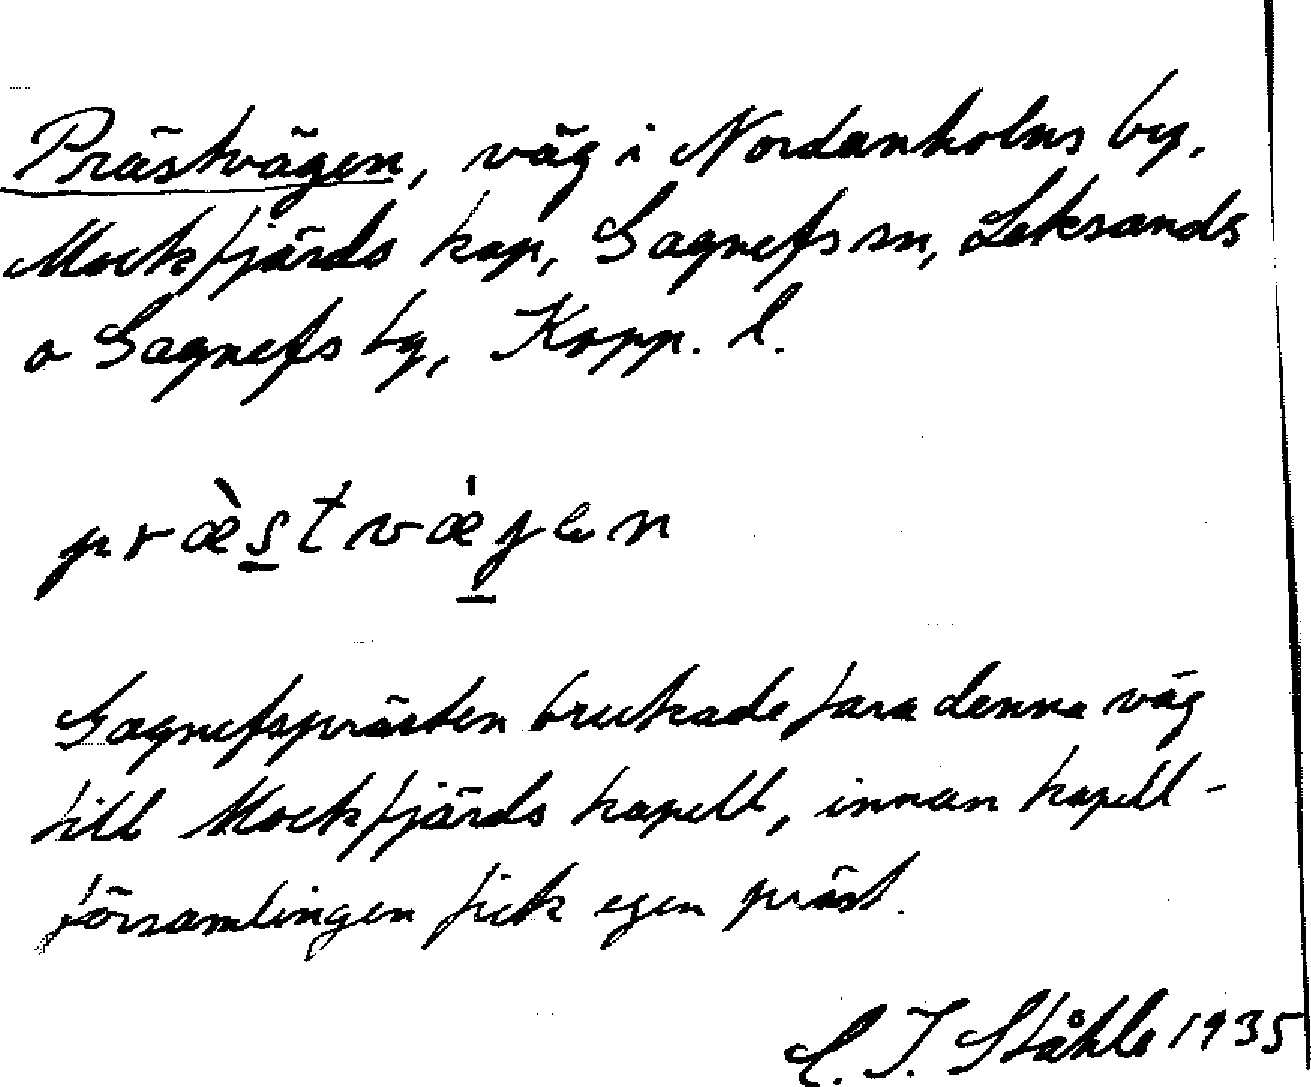 Prästvägen, väg i Nordanholns by.
Mockfjärds kap, Gagnefs sn, Leksands
o Gagnefs tg, Kopp. l.
præ̀stvæ̍gen
Gagnefsprästen brukade fara denna väg
till Mockfjärds kapell, innan kapell-
församlingen fick egen präst.
C. I. Ståhle 1935